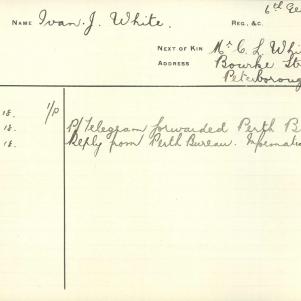 NAME Ivan. J. White. REG. &c. 6th
NEXT OF KIN Mr C. L. Whi
ADDRESS Bourke St
Peterboroug
18. 1/P
18. P/Telegram forwarded Perth B
18. Reply from Perth Bureau. Informati